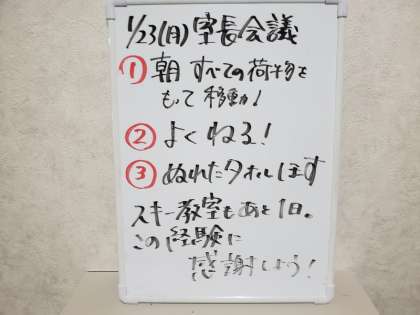 1/23(月)室長会議
① 朝 すべての荷物を
もって移動!
② よくねる!
③ ぬれたタオルほす
スキー教室もあと1日。
この経験に
感謝しよう!